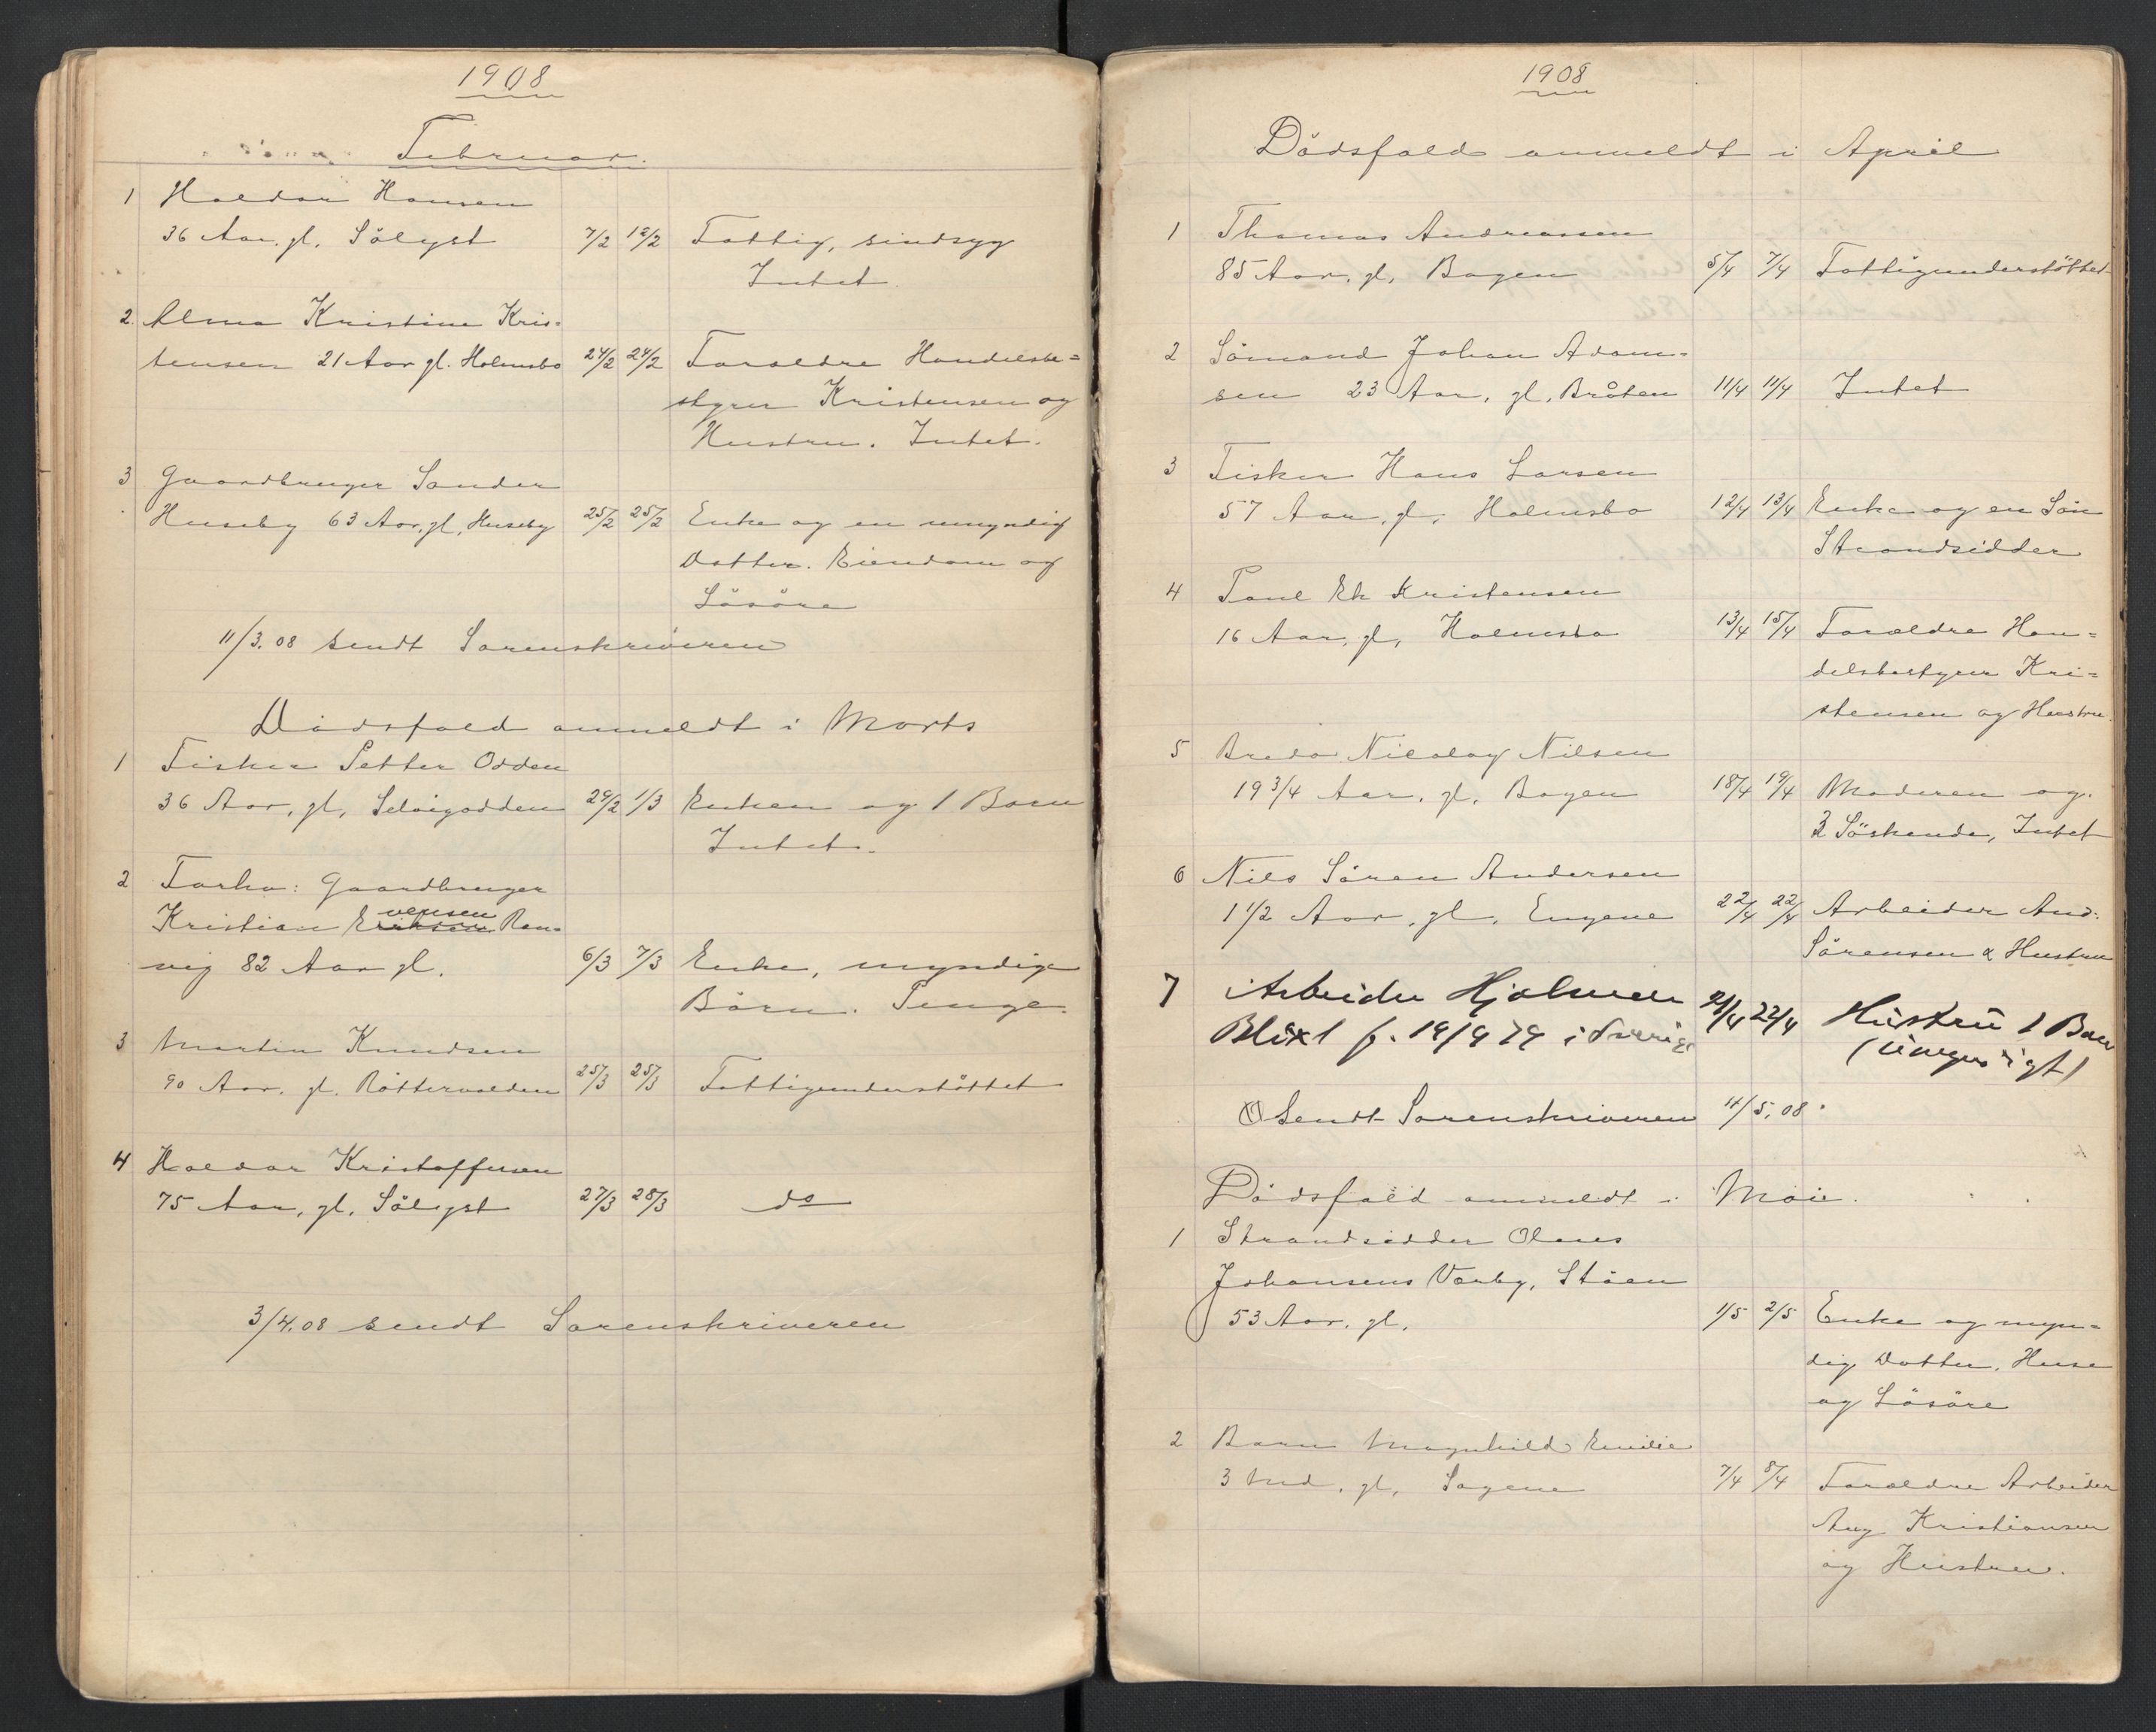 1908
Februar.
1 Haldor Hansen
36 Aar. gl. Sölyst 7/2 12/2 Fattig, sindsyg
Intet.
2. Alma Kristine Kris-
tensen 21 Aar gl. Holmsbo 24/2 24/2 Forældre Handelsbe=
styrer Kristensen og
Hustru. Intet.
3 Gaardbruger Sander
Huseby 63 Aar. gl. Huseby 25/2 25/2 Enke og en umyndig
Datter. Eiendom og
Lösöre
11/3.08 sendt Sorenskriveren
Dödsfald anmeldt i Marts
1 Fisker Petter Odden
36 Aar, gl, Selvigodden 29/2 1/3 Enken og 1 Barn
Intet.
2 Forhv: Gaardbruger
vensen
Kristian Eriksen Ran-
vig 82 Aar gl. 6/3 7/3 Enke, myndige
Börn. Penge.
3 Martin Knudsen
90 Aar. gl. Röttervolden 25/3 25/3 Fattigunderstöttet
4 Haldor Kristoffersen
75 Aar, gl, Sölyst 27/3 28/3 do
3/4.08 sendt Sorenskriveren
1908
Dödsfald anmeldt i April
1 Thomas Andreassen
85 Aar. gl, Bogen 5/4 7/4 Fattigunderstöttet
2 Sömand Johan Adam-
sen 23 Aar, gl, Bråten 11/4 11/4 Intet
3 Fisker Hans Larsen
57 Aar, gl, Holmsbo 12/4 13/4 Enke og en Sön
Strandsidder
4 Paul Ek Kristensen
16 Aar, gl, Holmsbo 13/4 15/4 Forældre Han=
delsbestyrer Kri=
stensen og Hustru.
5 Bredo Nicolay Nilsen
19 3/4 Aar. gl, Bogen 18/4 19/4 Moderen og
3 Söskende, Intet
6 Nils Sören Andersen
1 1/2 Aar, gl, Engene 22/4 22/4 Arbeider And:
Sörensen & Hustru
7 Arbeider Hjalmar 21/4 22/4 Hustru 1 Barn
Blixt f. 19/9 79 i Sverige
Sendt Sorenskriveren 4/5.08.
Dödsfald anmeldt i Mai.
1 Strandsidder Olaus
Johansens Værby, Stöen
53 Aar. gl, 1/5 2/5 Enke og myn=
dig Datter, Huse
og Lösöre
2 Barn Magnhild Emilie
3 Md, gl, Sagene 7/4 8/4 Forældre Arbeider
Aug Kristiansen
og Hustru.